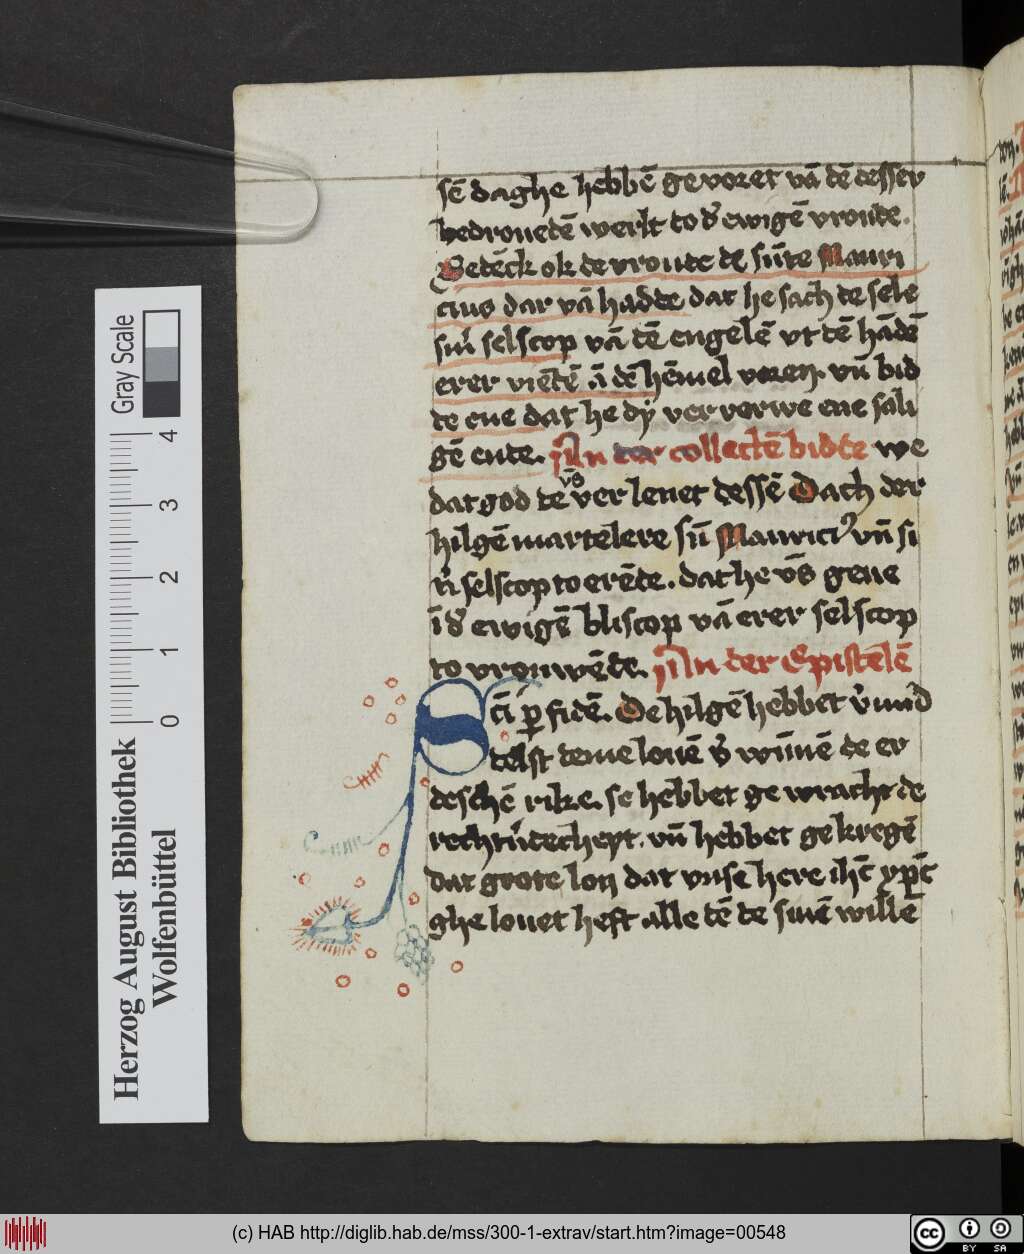 sē daghe hebbē gevoret vā dē desser
bedrouedē werlt to d' ewigē vroude.
Bedēck ok de vroude de sūte Mauri
cius dar vā hadde dat he sach de sele
sin' selscop vā dē engelē vt dē hādē
erer viēdē ā dē hēmel voren. vn̄ bid
de ene dat he dy ver verwe ene sali
gē ende. In der collectē bidde we
dat god de v̄s ver lenet dessē Dach der
hilgē martelere sū Maurici' vn̄ si
n' selscop to erēde. dat he v̄s geue
ī d' ewigē bliscop vā erer selscop
to vrouwēde. In der Epistelē
Scī ꝑ fidē. De hilgē hebbet v'mid
delst deme louē v' wūnē de er
deschē rike. se hebbet ge wracht de
rechtu'dicheyt. vn̄ hebbet gekregē
dat grote lon dat vnse here ihc̄ xp̄c
ghe louet heft alle dē de sinē willē
Gray Scale
0 1 2 3 4
Herzog August Bibliothek
Wolfenbüttel
(c) HAB http://diglib.hab.de/mss/300-1-extrav/start.htm?image=00548
cc BY SA